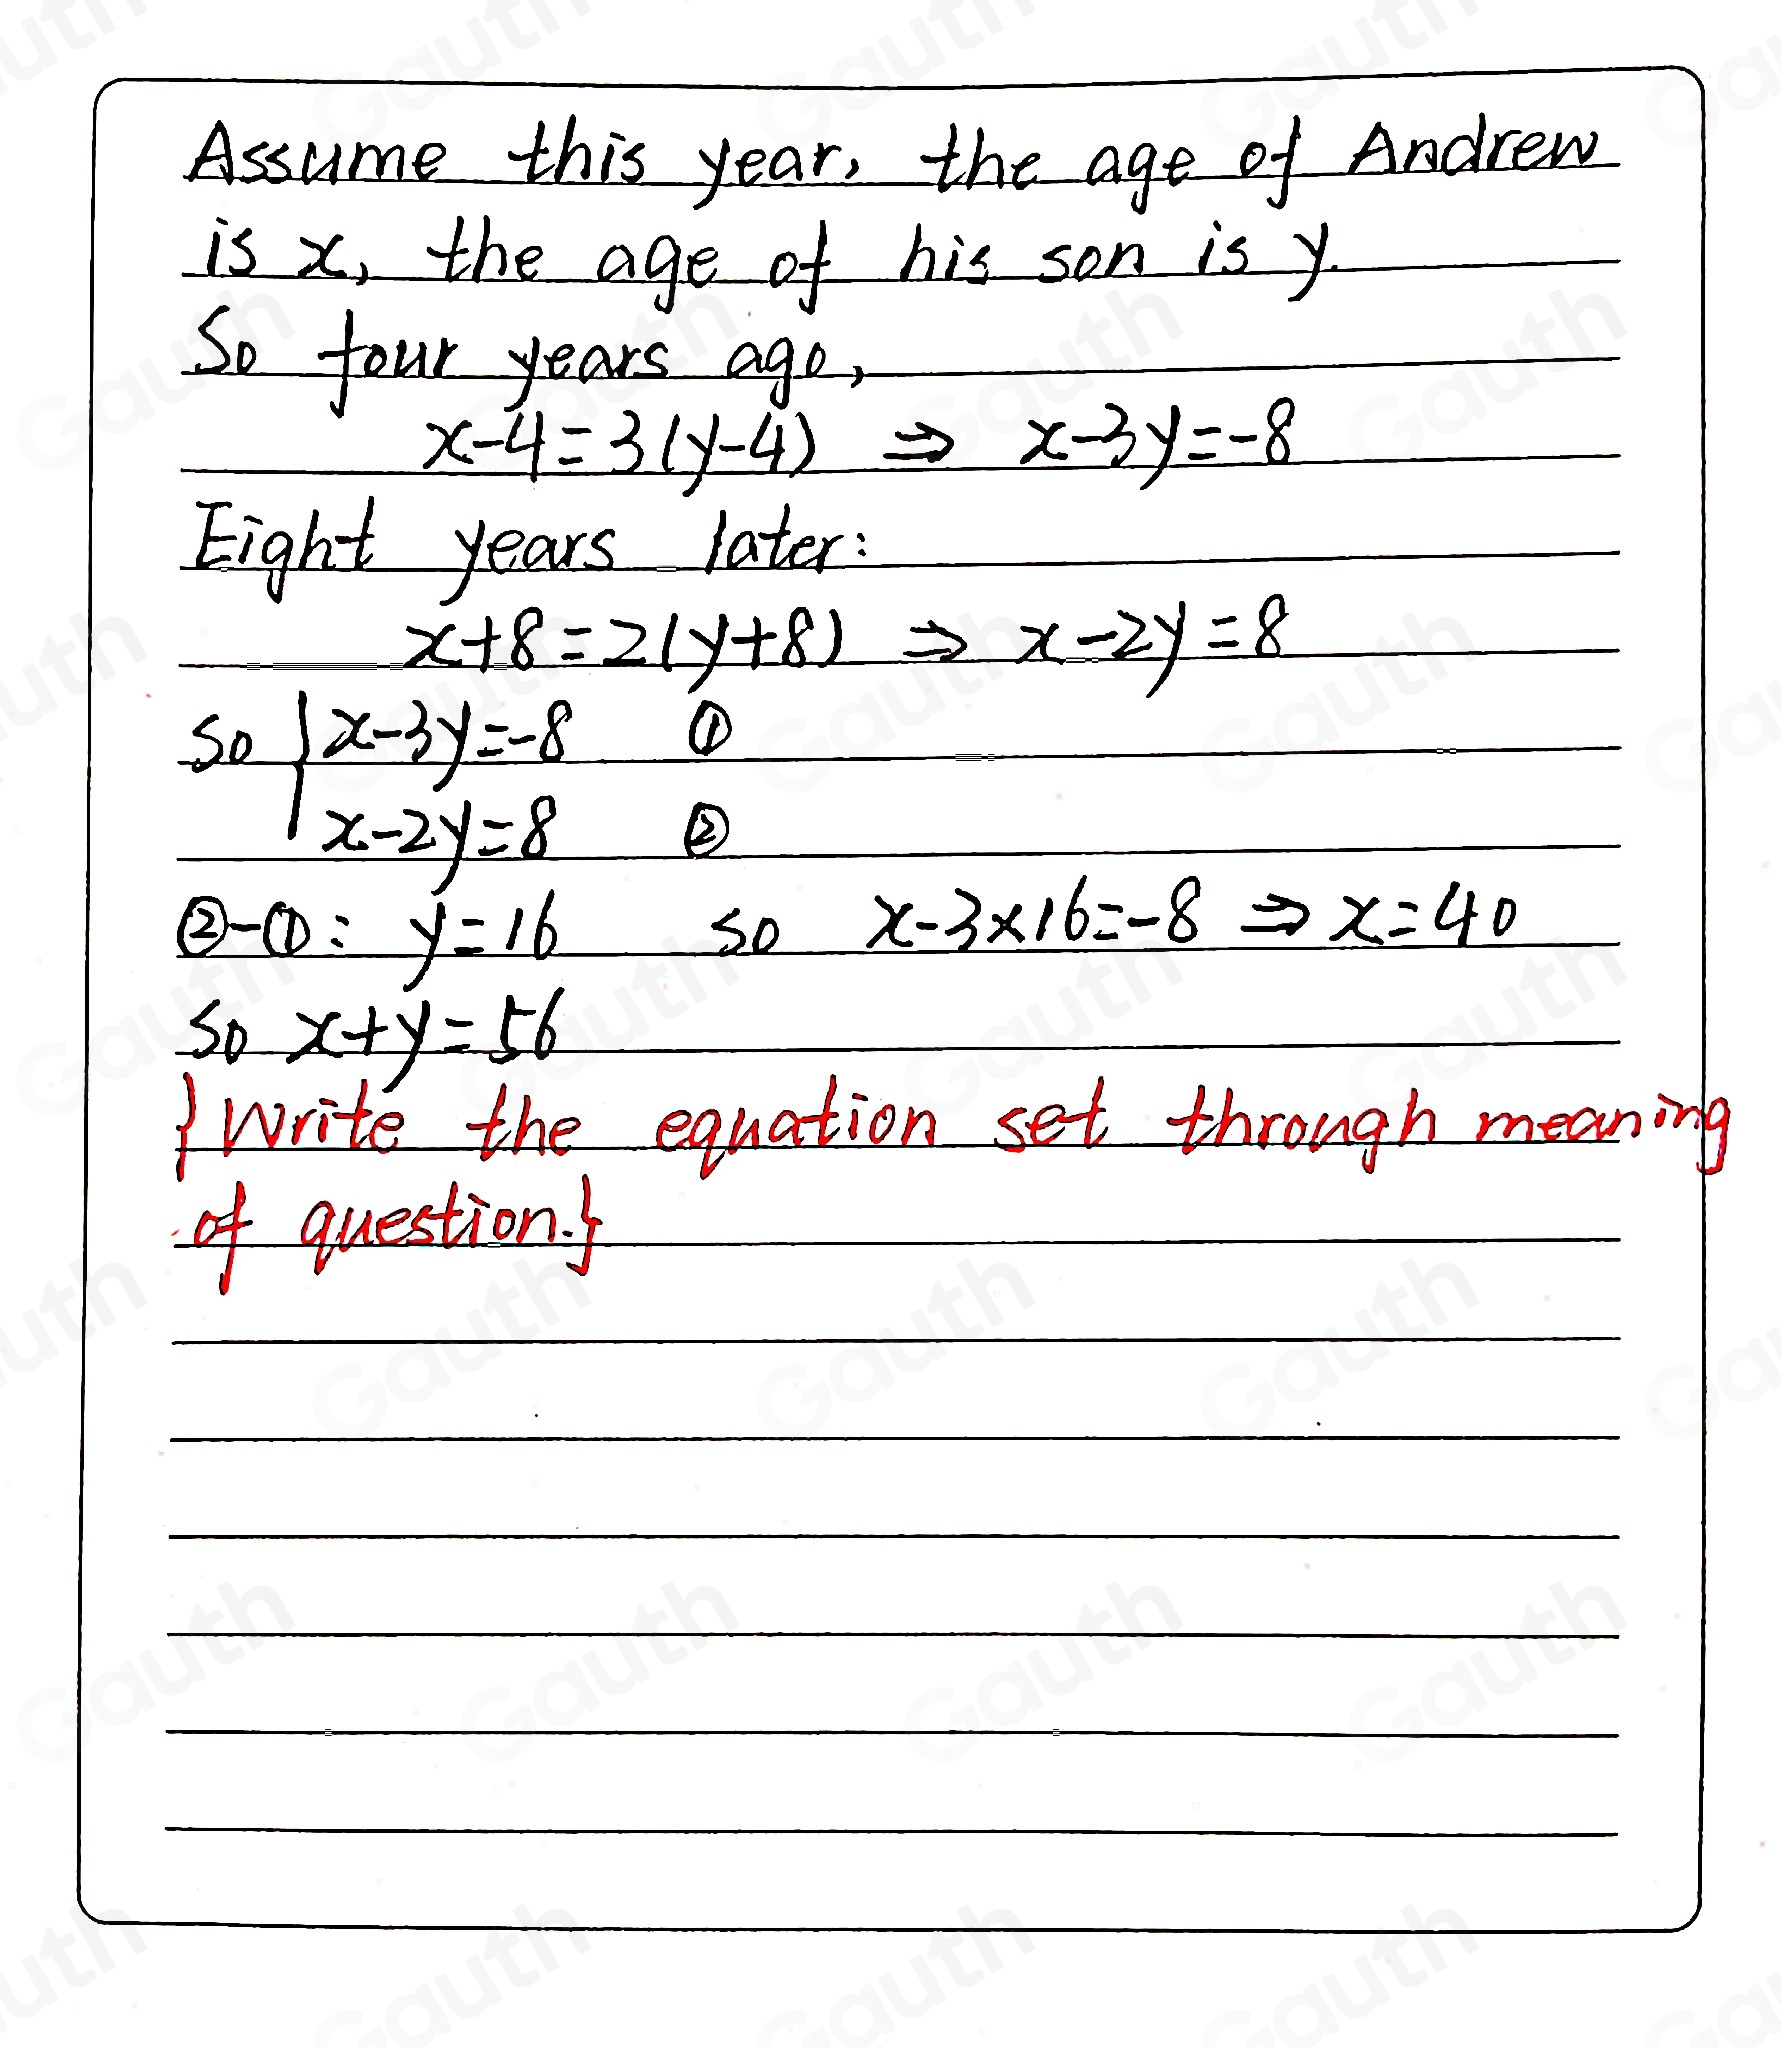 Assume this year, the age of Andrew
is x, the age of his son is y.
So four years ago,
x-4=3(y-4) ⇒ x-3y=-8
Eight years later:
x+8=2(y+8) ⇒ x-2y=8
so { x-3y=-8 ①
x-2y=8 ②
②-①: y=16 so x-3×16=-8 ⇒ x=40
so x+y=56
{Write the equation set through meaning
of question.}